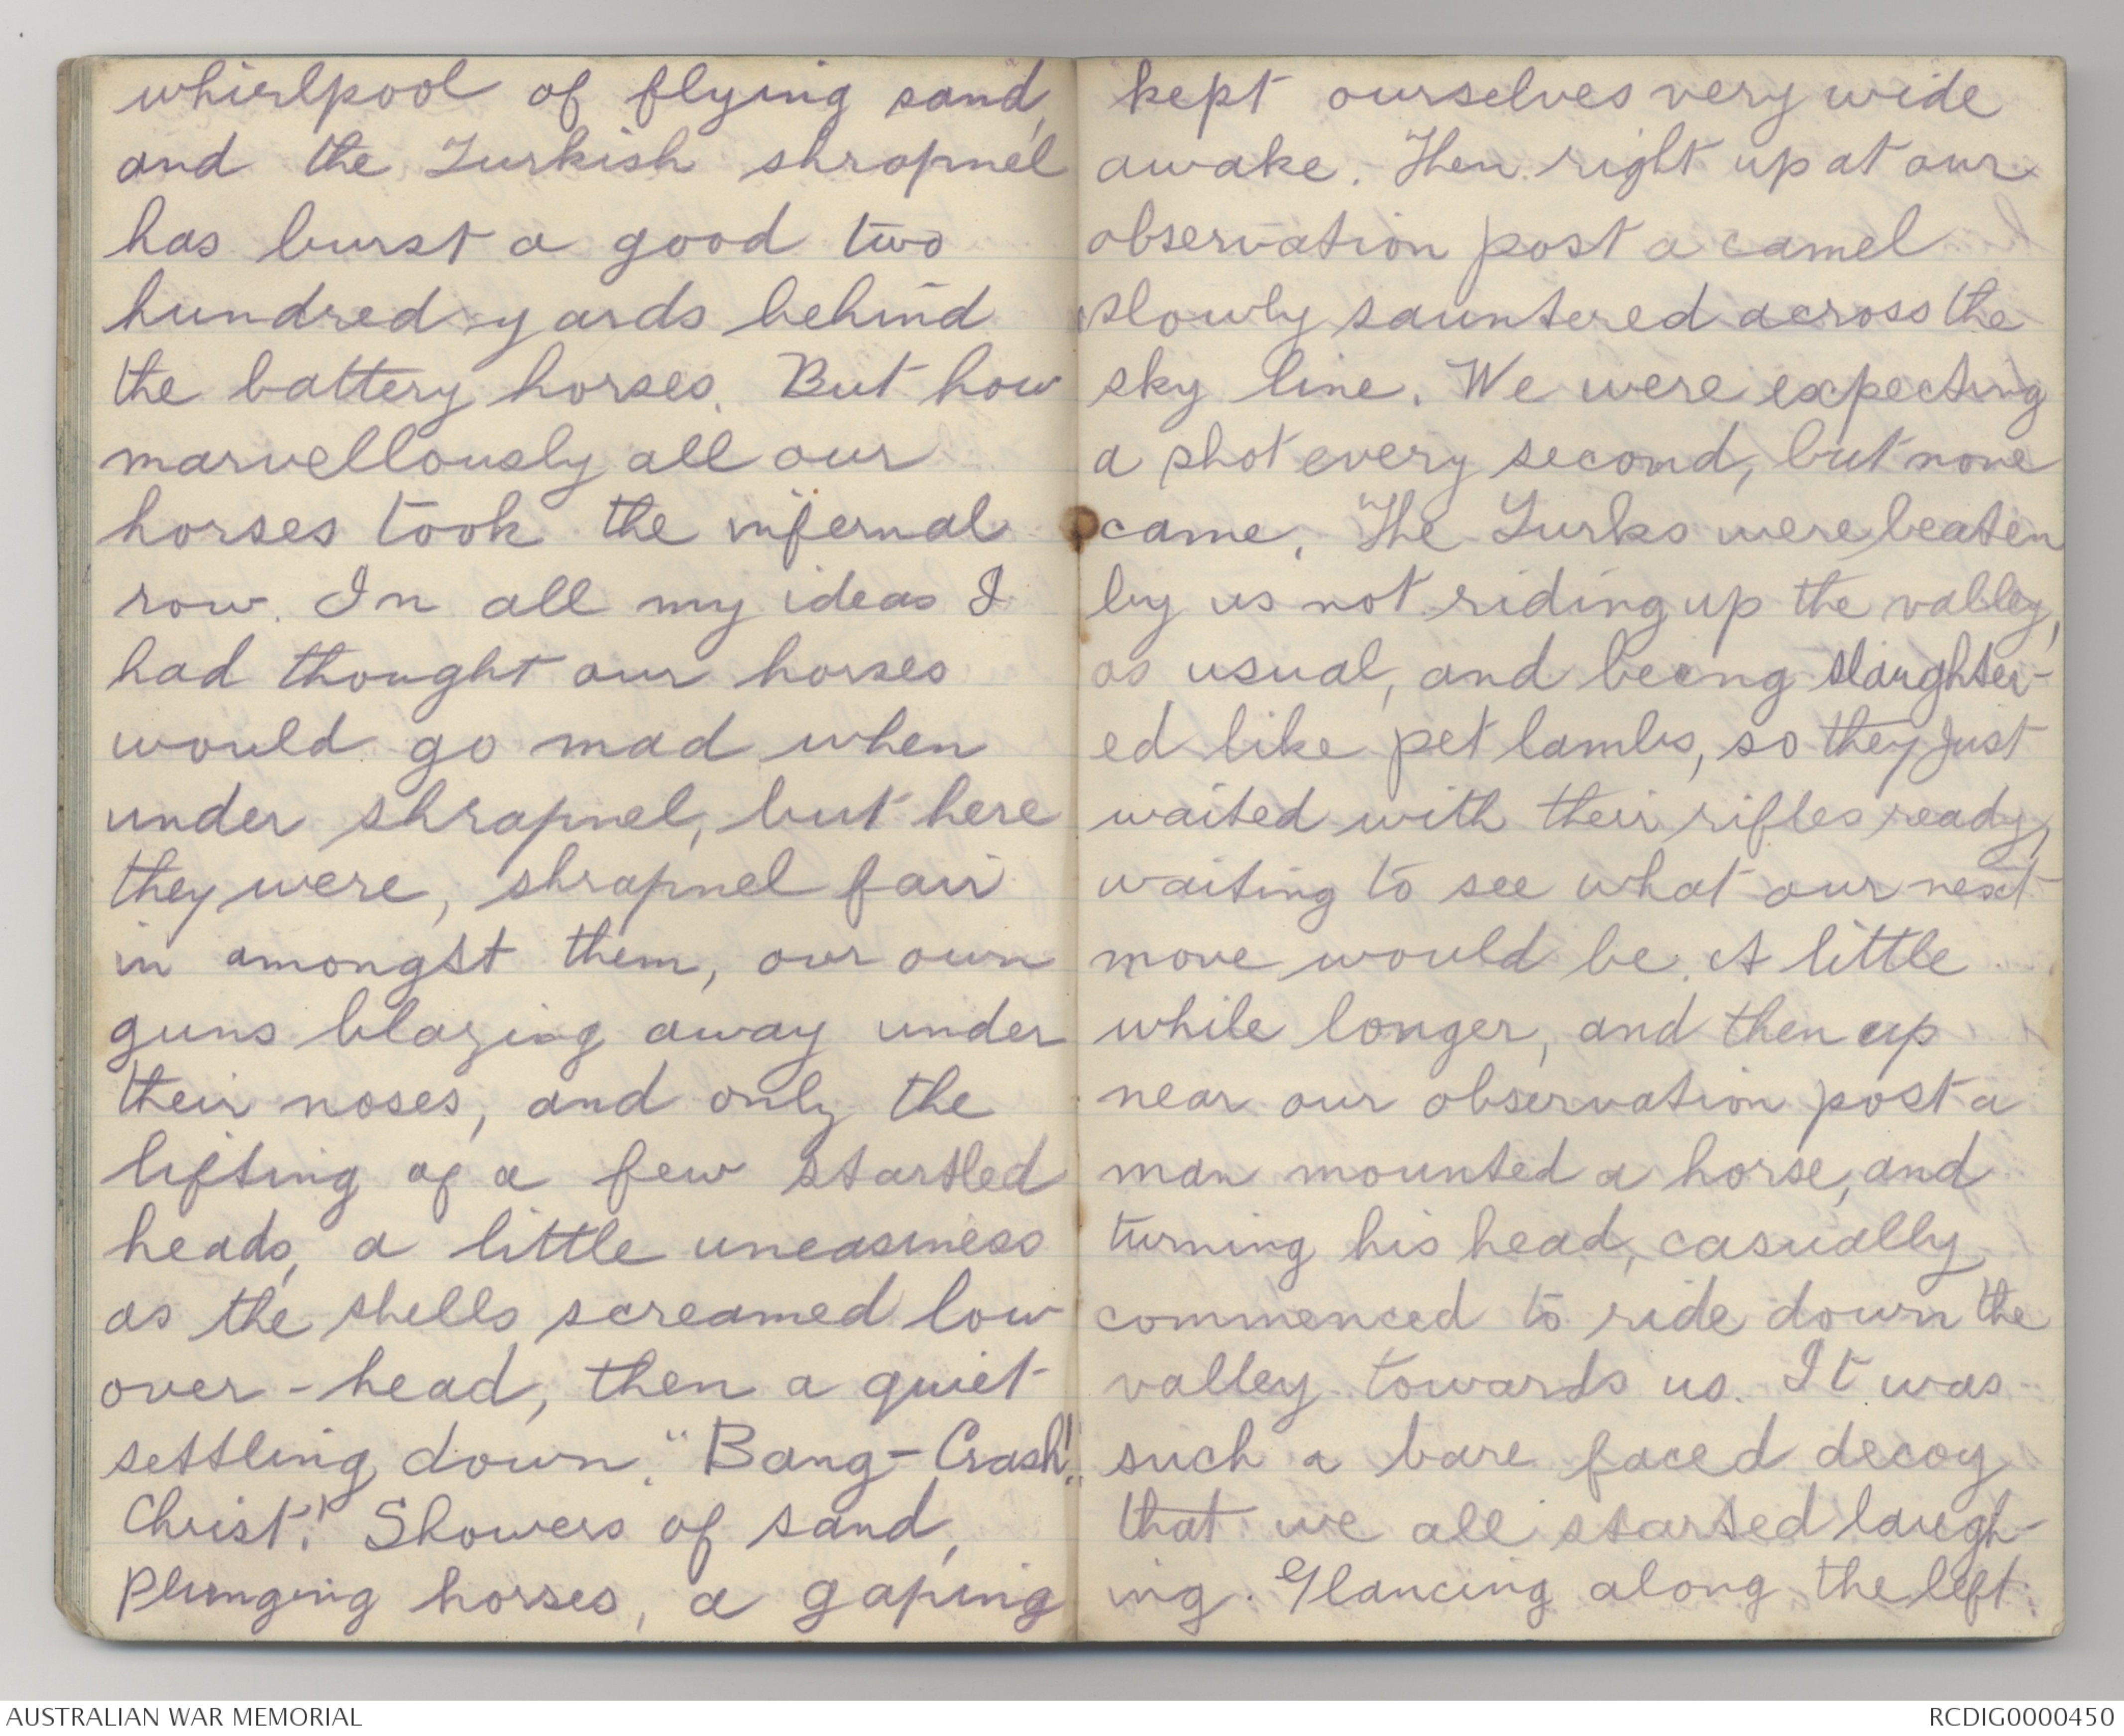 whirlpool of flying sand,
and the Turkish shrapnel
has burst a good two
hundred yards behind
the battery horses. But how
marvellously all our
horses took the infernal
row. In all my ideas I
had thought our horses
would go mad when
under shrapnel, but here
they were, shrapnel fair
in amongst them, our own
guns blazing away under
their noses, and only the
lifting of a few startled
heads, a little uneasiness
as the shells screamed low
over-head, then a quiet
settling down. "Bang-Crash!"
Christ!" Showers of sand,
plunging horses, a gaping
kept ourselves very wide
awake. Then right up at our
observation post a camel
slowly sauntered across the
sky line. We were expecting
a shot every second, but none
came. The Turks were beaten
by us not riding up the valley,
as usual, and being slaughter-
ed like pet lambs, so they just
waited with their rifles ready,
waiting to see what our next
move would be. A little
while longer, and then up
near our observation post a
man mounted a horse, and
turning his head, casually
commenced to ride down the
valley towards us. It was
such a bare faced decoy
that we all started laugh-
ing. Glancing along the left
AUSTRALIAN WAR MEMORIAL
RCDIG0000450